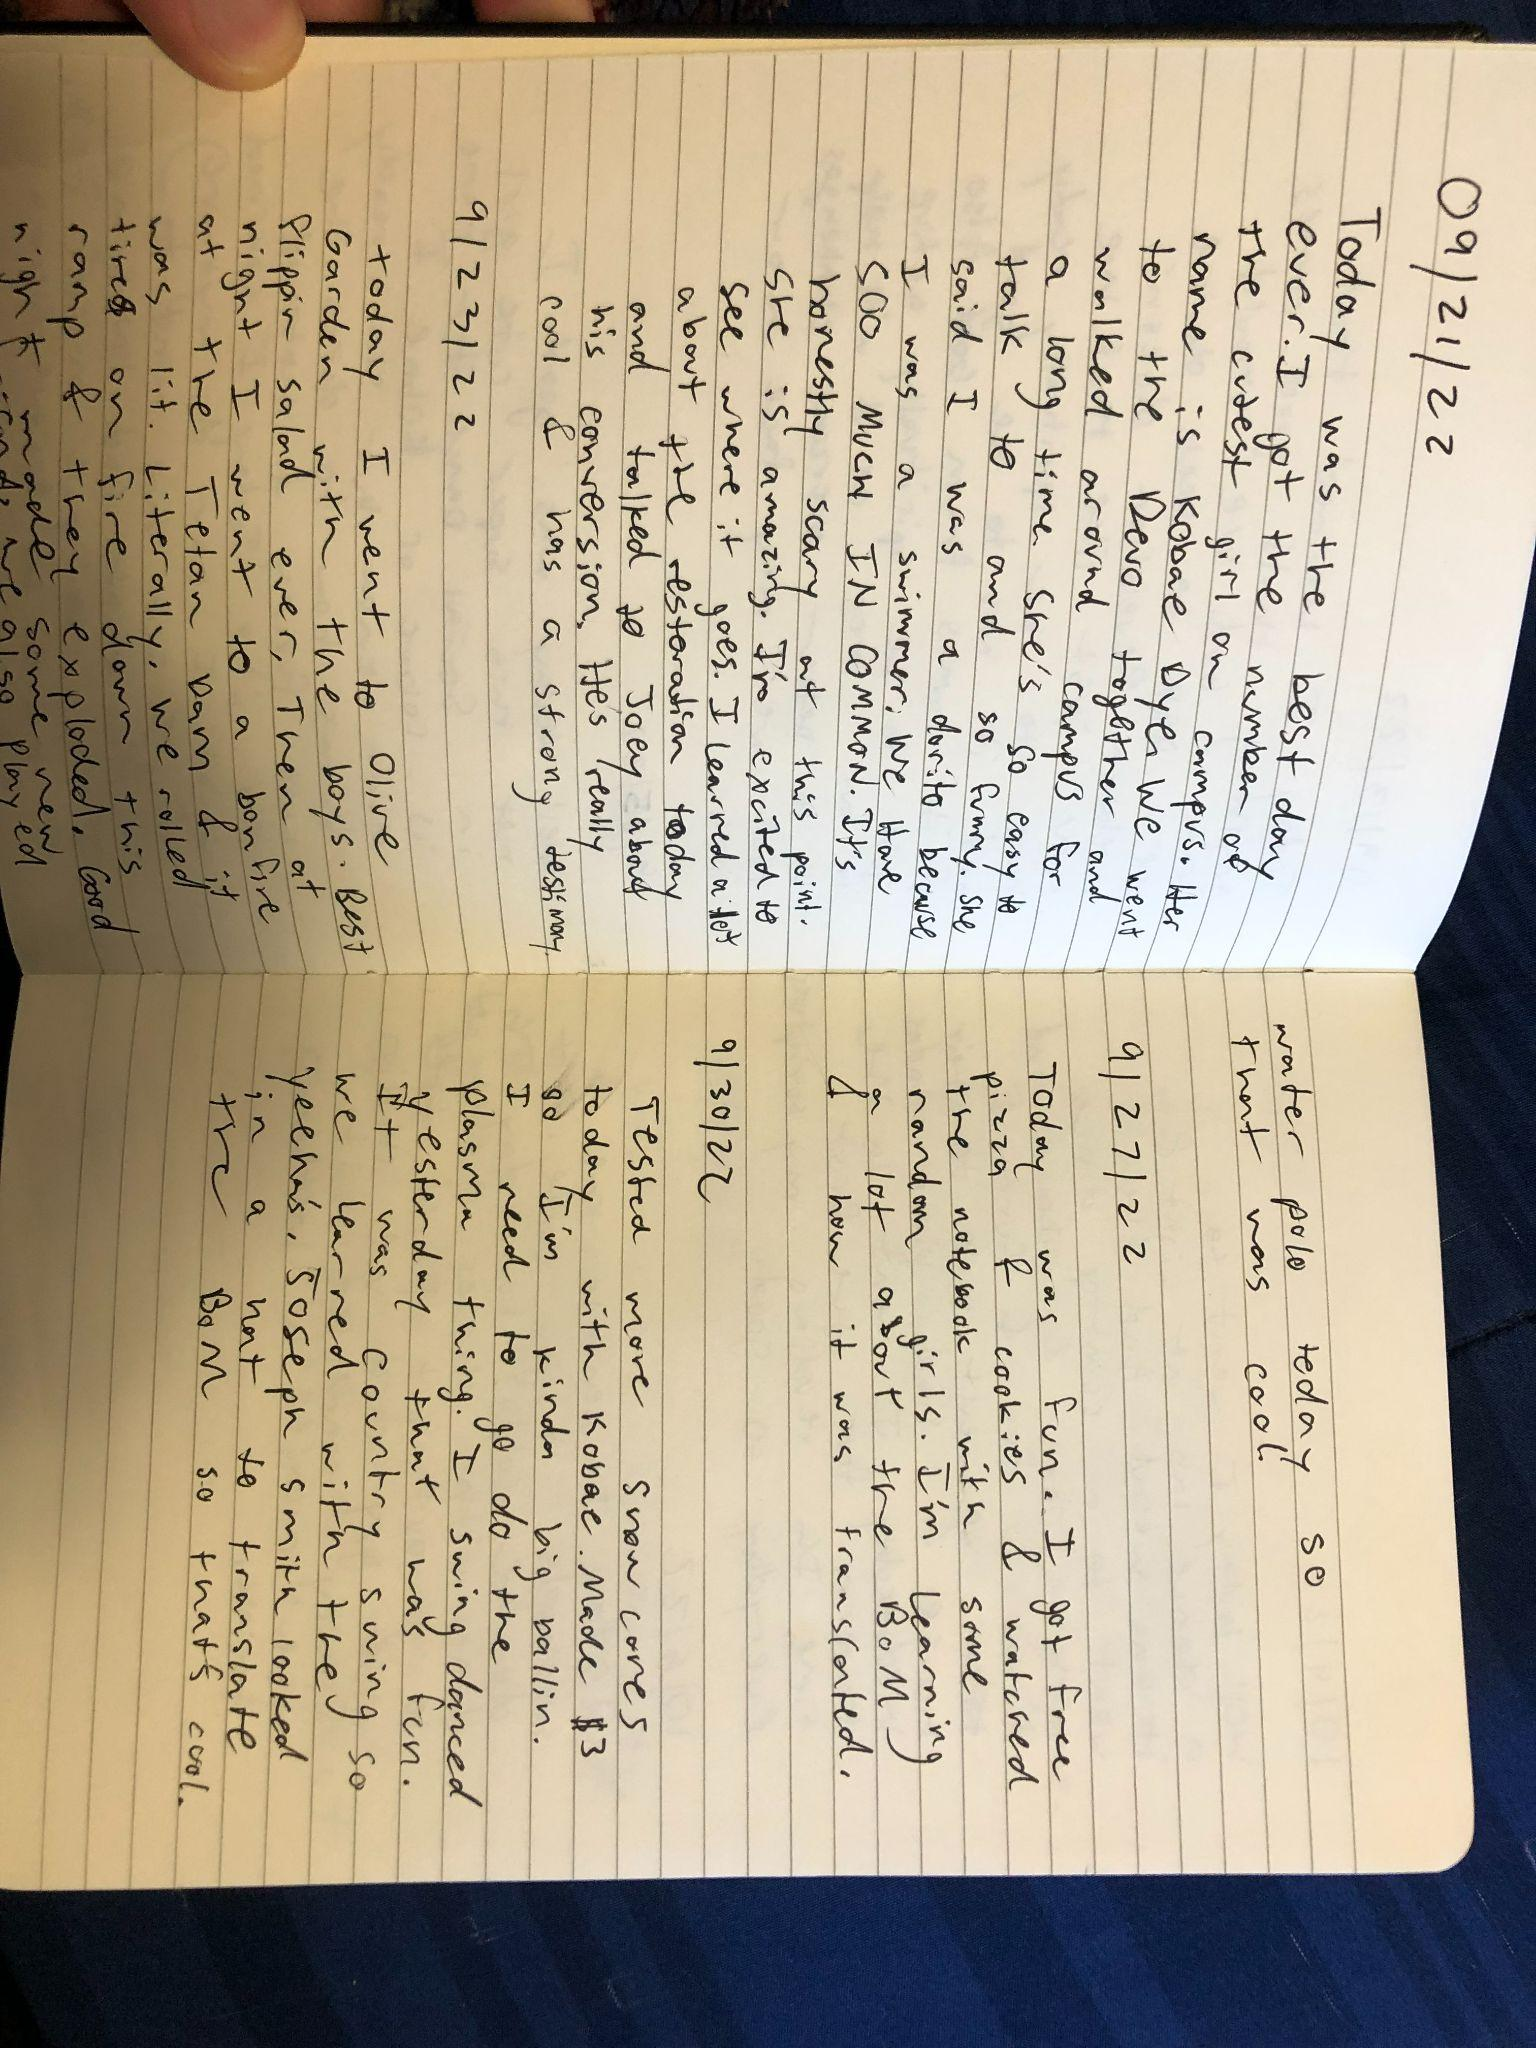 09/21/22
Today was the best day
ever. I got the number of
the cutest girl on campus. Her
name is Kobae Dyer. We went
to the Devo together and
walked around campus for
a long time. She's so easy to
talk to and so funny. She
said I was a dorito because
I was a swimmer. We Have
SOO MUCH IN COMMON. It's
honestly scary at this point.
She is amazing. I'm excited to
see where it goes. I learned a lot
about the restoration today
and talked to Joey about
his conversion. Hes really
cool & has a strong testimony
9/23/22
today I went to Olive
Garden with the boys. Best
flippin salad ever. Then at
night I went to a bonfire
at the Tetan Dam & it
was lit. Literally. We rolled
tires on fire down this
ramp & they exploded. Good
night made some new
we also played
water polo today so
that was cool.
9/27/22
Today was fun. I got free
pizza & cookies & watched
the notebook with some
random girls. I'm learning
a lot about the BoM
& how it was translated.
9/30/22
Tested more snow cones
today with Kobae. Made $3
so I'm kinda big ballin.
I need to go do the
plasma thing. I swing danced
yesterday that was fun.
It was country swing so
we learned with the
yeeha's. Joseph smith looked
in a hat to translate
the BoM so thats cool.